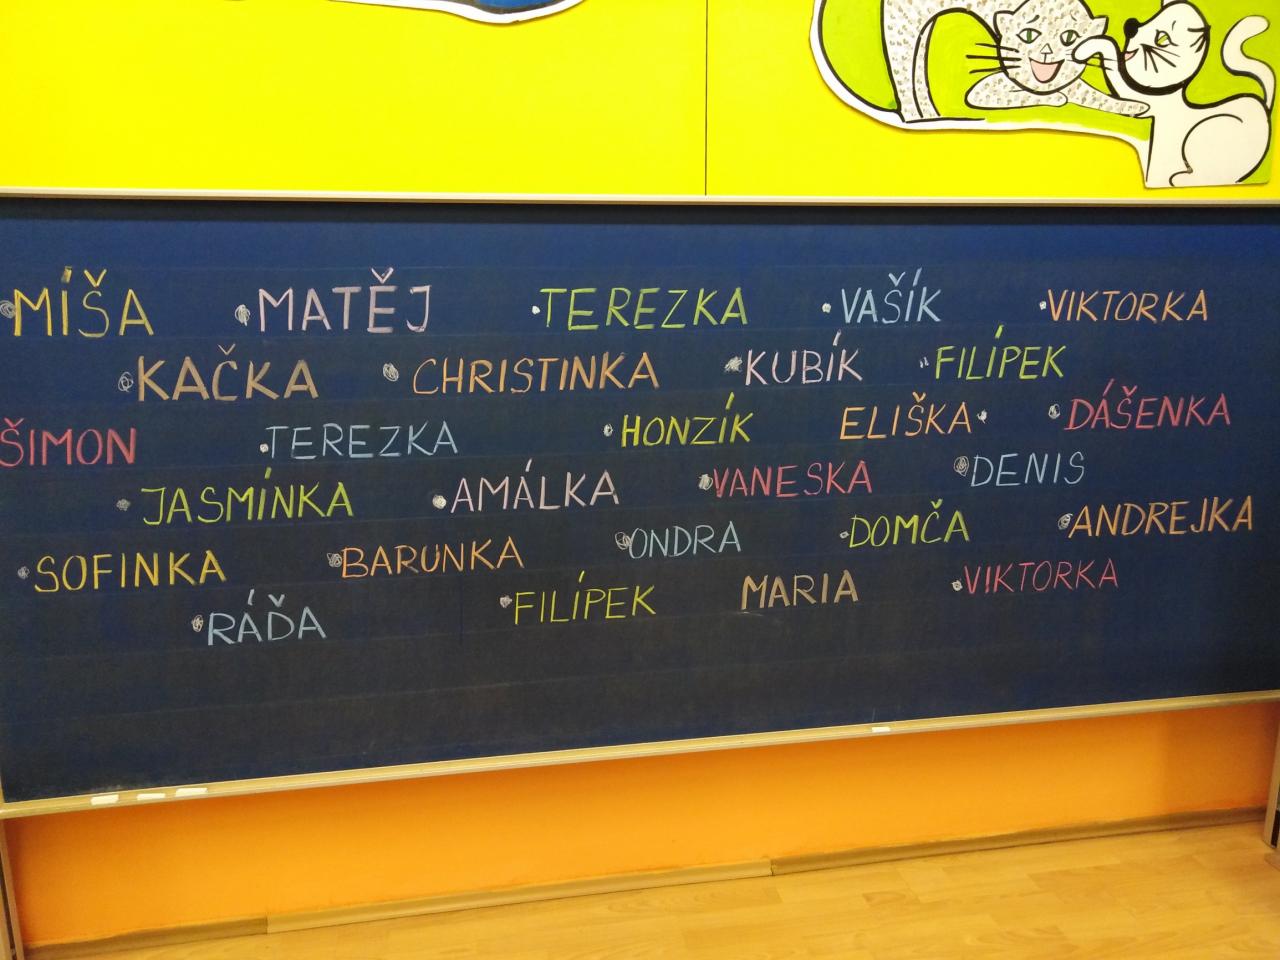 MÍŠA MATĚJ TEREZKA VAŠÍK VIKTORKA
KAČKA CHRISTINKA KUBÍK FILÍPEK
ŠIMON TEREZKA HONZÍK ELIŠKA DÁŠENKA
JASMÍNKA AMÁLKA VANESKA DENIS
SOFINKA BARUNKA ONDRA DOMČA ANDREJKA
RÁĎA FILÍPEK MARIA VIKTORKA